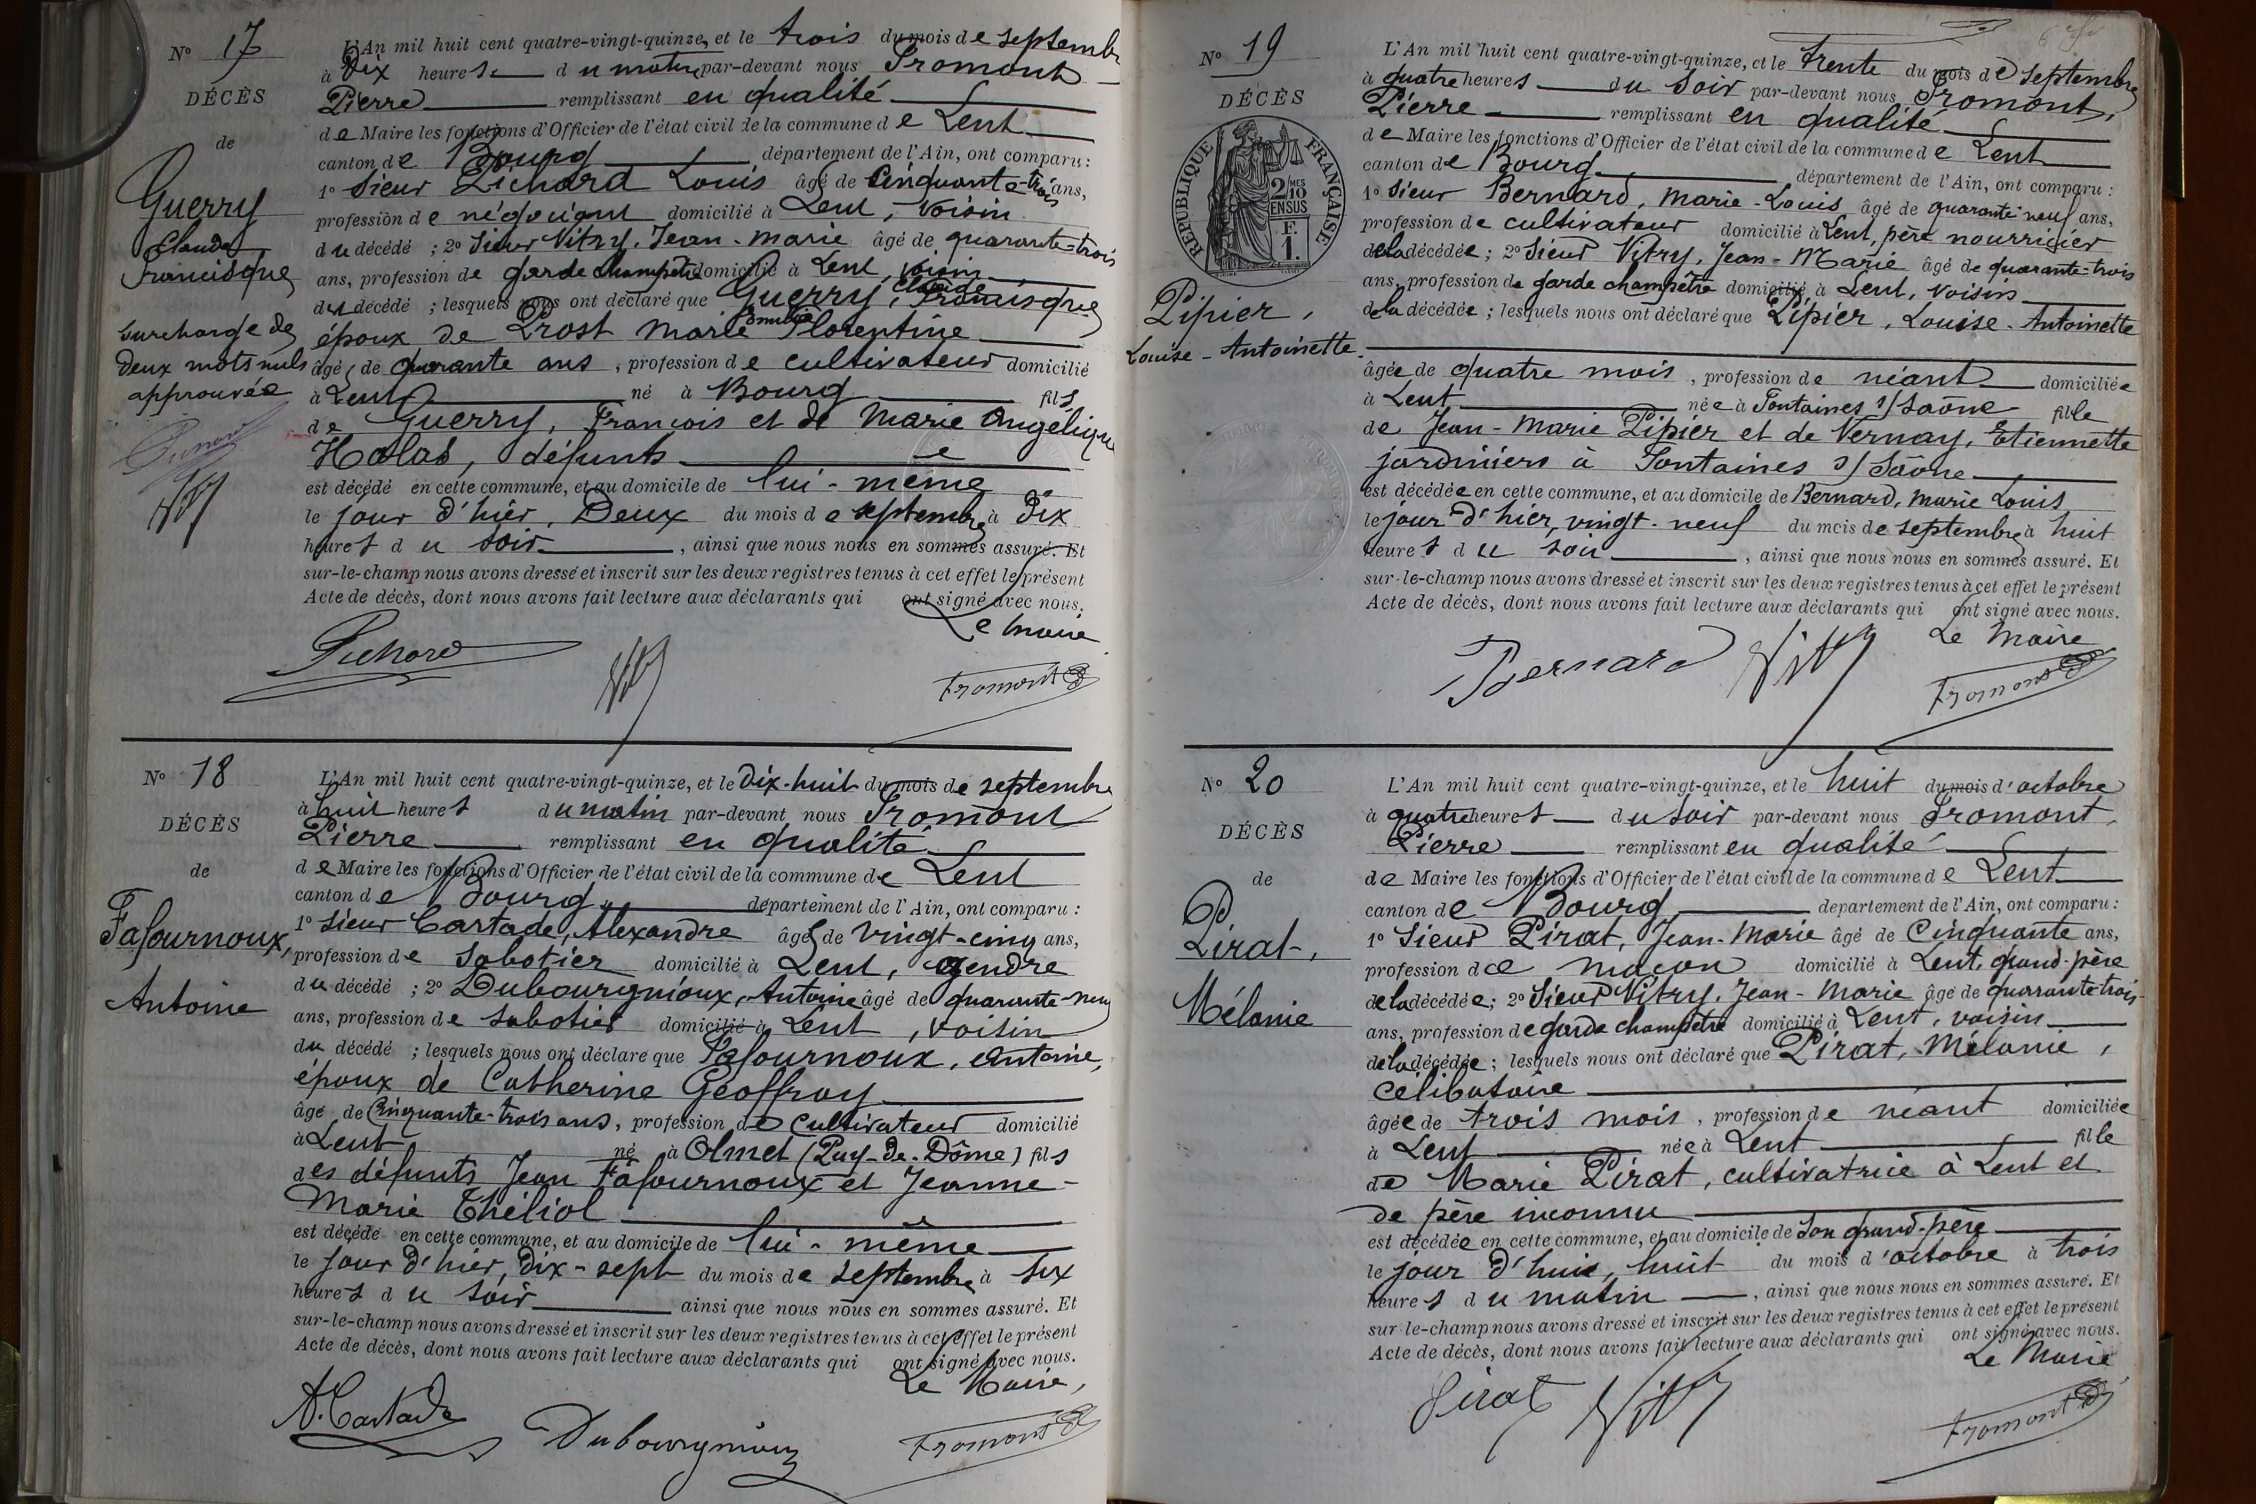 N° 17
DÉCÈS
de
Guerry
Claude
Francisque
surcharge de
deux mots nuls
approuvée
L'An mil huit cent quatre-vingt-quinze, et le trois du mois de septembre
à Dix heures du matin par-devant nous Fromont
Pierre remplissant en qualité
de Maire les fonctions d'Officier de l'état civil de la commune de Lent
canton de Bourg département de l'Ain, ont comparu :
1° Sieur Pichard Louis âgé de Cinquante-trois ans,
profession de négociant domicilié à Lent, voisin
du décédé ; 2° Sieur Vitry, Jean-Marie âgé de quarante-trois
ans, profession de garde champêtre domicilié à Lent, voisin
du décédé ; lesquels nous ont déclaré que Guerry, Claude Francisque
époux de Prost Marie Florentine
âgé de quarante ans, profession de cultivateur domicilié
à Lent né à Bourg fils
de Guerry, François et de Marie Angélique
défunts
est décédé en cette commune, et au domicile de lui-même
le jour d'hier, Deux du mois de septembre à dix
heures du soir, ainsi que nous nous en sommes assuré. Et
sur-le-champ nous avons dressé et inscrit sur les deux registres tenus à cet effet le présent
Acte de décès, dont nous avons fait lecture aux déclarants qui ont signé avec nous.
Le Maire
Pichard
Vitry
Fromont
N° 18
DÉCÈS
de
Fafournoux,
Antoine
L'An mil huit cent quatre-vingt-quinze, et le Dix-huit du mois de septembre
à huit heures du matin par-devant nous Fromont
Pierre remplissant en qualité
de Maire les fonctions d'Officier de l'état civil de la commune de Lent
canton de Bourg département de l'Ain, ont comparu :
1° Sieur Cartade, Alexandre âgé de vingt-cinq ans,
profession de Sabotier domicilié à Lent, gendre
du décédé ; 2° Dubourgnioux, Antoine âgé de quarante-neuf
ans, profession de sabotier domicilié à Lent, voisin
du décédé ; lesquels nous ont déclaré que Fafournoux, Antoine,
époux de Catherine Geoffray
âgé de Cinquante-trois ans, profession de Cultivateur domicilié
à Lent né à Olmet (Puy-de-Dôme) fils
des défunts Jean Fafournoux et Jeanne-
Marie Théliol
est décédé en cette commune, et au domicile de lui-même
le jour d'hier, Dix-sept du mois de septembre à six
heures du soir ainsi que nous nous en sommes assuré. Et
sur-le-champ nous avons dressé et inscrit sur les deux registres tenus à cet effet le présent
Acte de décès, dont nous avons fait lecture aux déclarants qui ont signé avec nous.
Le Maire,
A. Cartade
Dubourgnioux
Fromont
N° 19
DÉCÈS
RÉPUBLIQUE FRANÇAISE
2/10 MES
EN SUS
F.
1.
Pipier,
Louise-Antoinette
L'An mil huit cent quatre-vingt-quinze, et le trente du mois de septembre
à quatre heures du soir par-devant nous Fromont,
Pierre remplissant en qualité
de Maire les fonctions d'Officier de l'état civil de la commune de Lent
canton de Bourg département de l'Ain, ont comparu :
1° Sieur Bernard, Marie-Louis âgé de quarante neuf ans,
profession de cultivateur domicilié à Lent, père nourricier
de la décédée ; 2° Sieur Vitry, Jean-Marie âgé de quarante-trois
ans, profession de garde champêtre domicilié à Lent, voisin
de la décédée ; lesquels nous ont déclaré que Pipier, Louise-Antoinette
âgée de quatre mois, profession de néant domiciliée
à Lent née à Fontaines s/ Saône fille
de Jean-Marie Pipier et de Vernay, Etiennette
jardiniers à Fontaines s/ Saône
est décédée en cette commune, et au domicile de Bernard, Marie Louis
le jour d'hier, vingt-neuf du mois de septembre à huit
heures du soir, ainsi que nous nous en sommes assuré. Et
sur-le-champ nous avons dressé et inscrit sur les deux registres tenus à cet effet le présent
Acte de décès, dont nous avons fait lecture aux déclarants qui ont signé avec nous.
Le Maire
Bernard
Vitry
Fromont
N° 20
DÉCÈS
de
Pirat,
Mélanie
L'An mil huit cent quatre-vingt-quinze, et le huit du mois d'octobre
à quatre heures du soir par-devant nous Fromont,
Pierre remplissant en qualité
de Maire les fonctions d'Officier de l'état civil de la commune de Lent
canton de Bourg département de l'Ain, ont comparu :
1° Sieur Pirat, Jean-Marie âgé de Cinquante ans,
profession de maçon domicilié à Lent, grand-père
de la décédée ; 2° Sieur Vitry, Jean-Marie âgé de quarante-trois
ans, profession de garde champêtre domicilié à Lent, voisin
de la décédée ; lesquels nous ont déclaré que Pirat, Mélanie,
célibataire
âgée de trois mois, profession de néant domiciliée
à Lent née à Lent fille
de Marie Pirat, cultivatrice à Lent et
de père inconnu
est décédée en cette commune, et au domicile de son grand-père
le jour d'hui, huit du mois d'octobre à trois
heures du matin, ainsi que nous nous en sommes assuré. Et
sur-le-champ nous avons dressé et inscrit sur les deux registres tenus à cet effet le présent
Acte de décès, dont nous avons fait lecture aux déclarants qui ont signé avec nous.
Le Maire
Pirat
Vitry
Fromont